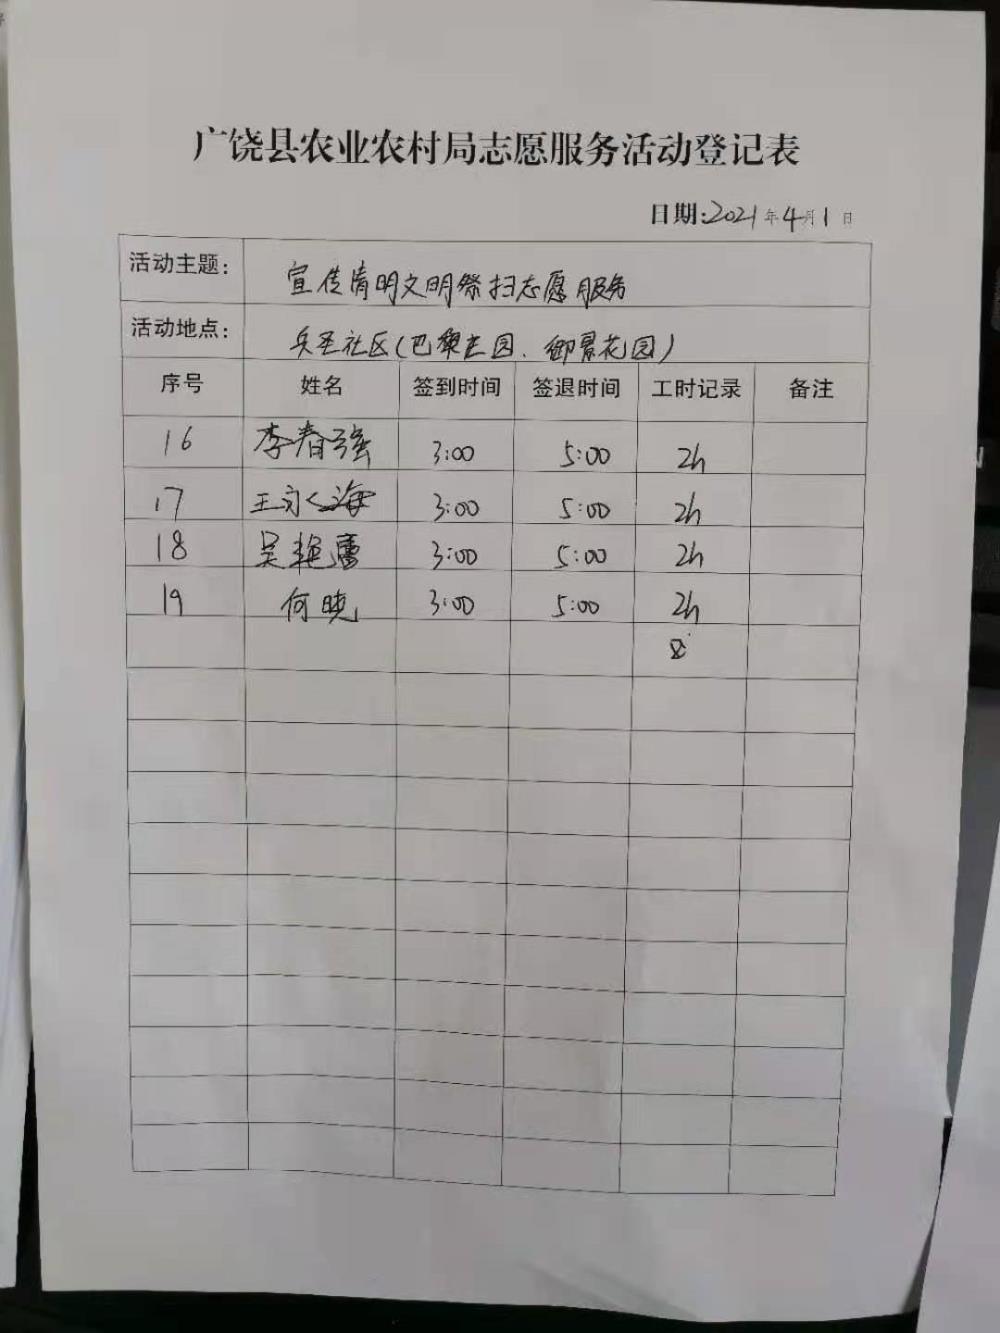 广饶县农业农村局志愿服务活动登记表
日期:2021年4月1日
活动主题: 宣传清明文明祭扫志愿服务
活动地点: 兵圣社区(巴黎庄园、御景花园)
序号 姓名 签到时间 签退时间 工时记录 备注
16 李春强 3:00 5:00 2h
17 王 海 3:00 5:00 2h
18 吴艳蕾 3:00 5:00 2h
19 何晓 3:00 5:00 2h
8